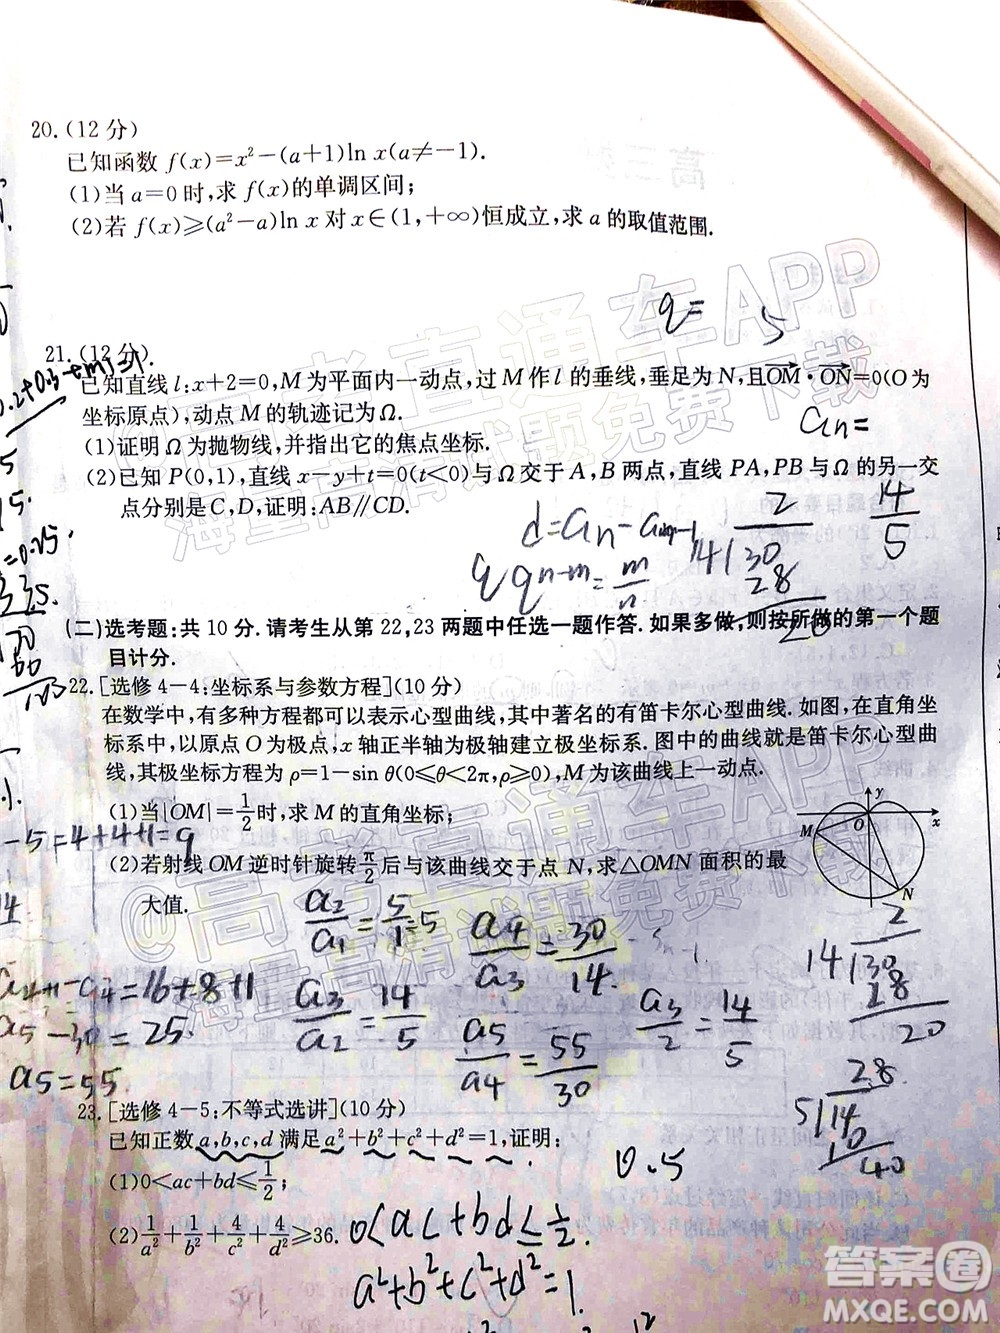 20.(12分)
已知函数 f(x)=x²-(a+1)ln x(a≠-1).
(1)当 a=0 时,求 f(x)的单调区间;
(2)若 f(x)≥(a²-a)ln x 对 x∈(1,+∞)恒成立,求 a 的取值范围.
q= 5
21.(12分)
已知直线 l:x+2=0,M 为平面内一动点,过 M 作 l 的垂线,垂足为 N,且OM·ON=0(O为
坐标原点),动点 M 的轨迹记为 Ω.
an=
(1)证明 Ω 为抛物线,并指出它的焦点坐标.
(2)已知 P(0,1),直线 x-y+t=0(t<0)与 Ω 交于 A,B 两点,直线 PA,PB 与 Ω 的另一交
点分别是 C,D,证明:AB∥CD.
14/5
q^{n-m}=m/n
14 30
28
20
(二)选考题:共 10 分.请考生从第 22,23 两题中任选一题作答.如果多做,则按所做的第一个题
目计分.
22.[选修 4-4:坐标系与参数方程](10 分)
在数学中,有多种方程都可以表示心型曲线,其中著名的有笛卡尔心型曲线.如图,在直角坐
标系中,以原点 O 为极点,x 轴正半轴为极轴建立极坐标系.图中的曲线就是笛卡尔心型曲
线,其极坐标方程为 ρ=1-sin θ(0≤θ<2π,ρ≥0),M 为该曲线上一动点.
(1)当|OM|=1/2时,求 M 的直角坐标;
(2)若射线 OM 逆时针旋转 π/2 后与该曲线交于点 N,求△OMN 面积的最
大值.
y
O
x
M
N
-5=4+4+1=9
a2/a1=5/1=5
a4/a3=30/14.
a3/a2=14/5
a5/a4=55/30
a3/2=14/5
2
14 30
28
20
=16+8+1
a5-30=25.
a5=55.
28
5 14
10
40
23.[选修 4-5:不等式选讲](10 分)
已知正数 a,b,c,d 满足 a²+b²+c²+d²=1,证明:
(1)0<ac+bd≤1/2;
0.5
(2)1/a²+1/b²+4/c²+4/d²≥36.
0<ac+bd≤1/2.
a²+b²+c²+d²=1.
@高考直通车APP
海量高清试题免费下载
@高考直通车APP
海量高清试题免费下载
答案圈
MXQE.COM